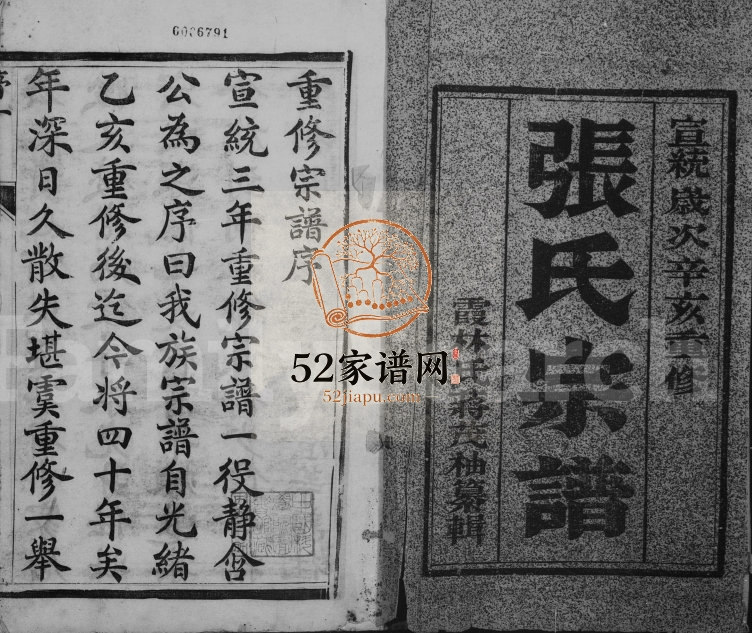 宣統歲次辛亥重修
張氏宗譜
霞林氏蔣茂柚纂輯
6006791
重修宗譜序
宣統三年重修宗譜一役静含
公為之序曰我族宗譜自光緒
乙亥重修後迄今將四十年矣
年深日久散失堪虞重修一舉
52家谱网
52jiapu.com